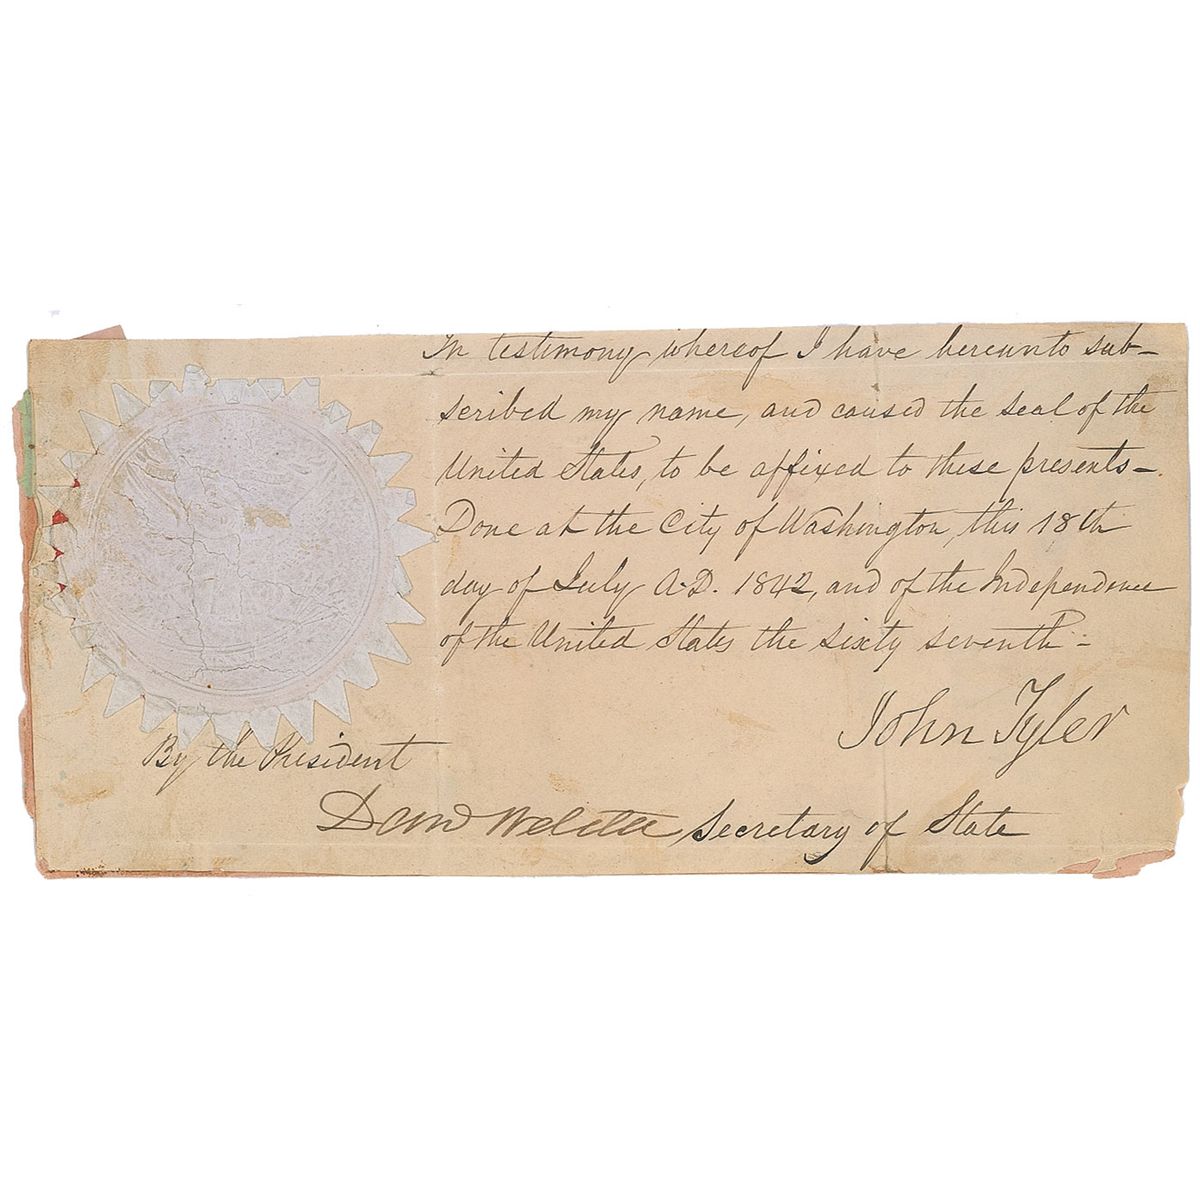 In testimony whereof I have hereunto sub-
scribed my name, and caused the seal of the
United States, to be affixed to these presents-
Done at the City of Washington, this 18th
day of July A.D. 1842, and of the Independence
of the United States the sixty seventh -
John Tyler
By the President
Danl Webster Secretary of State